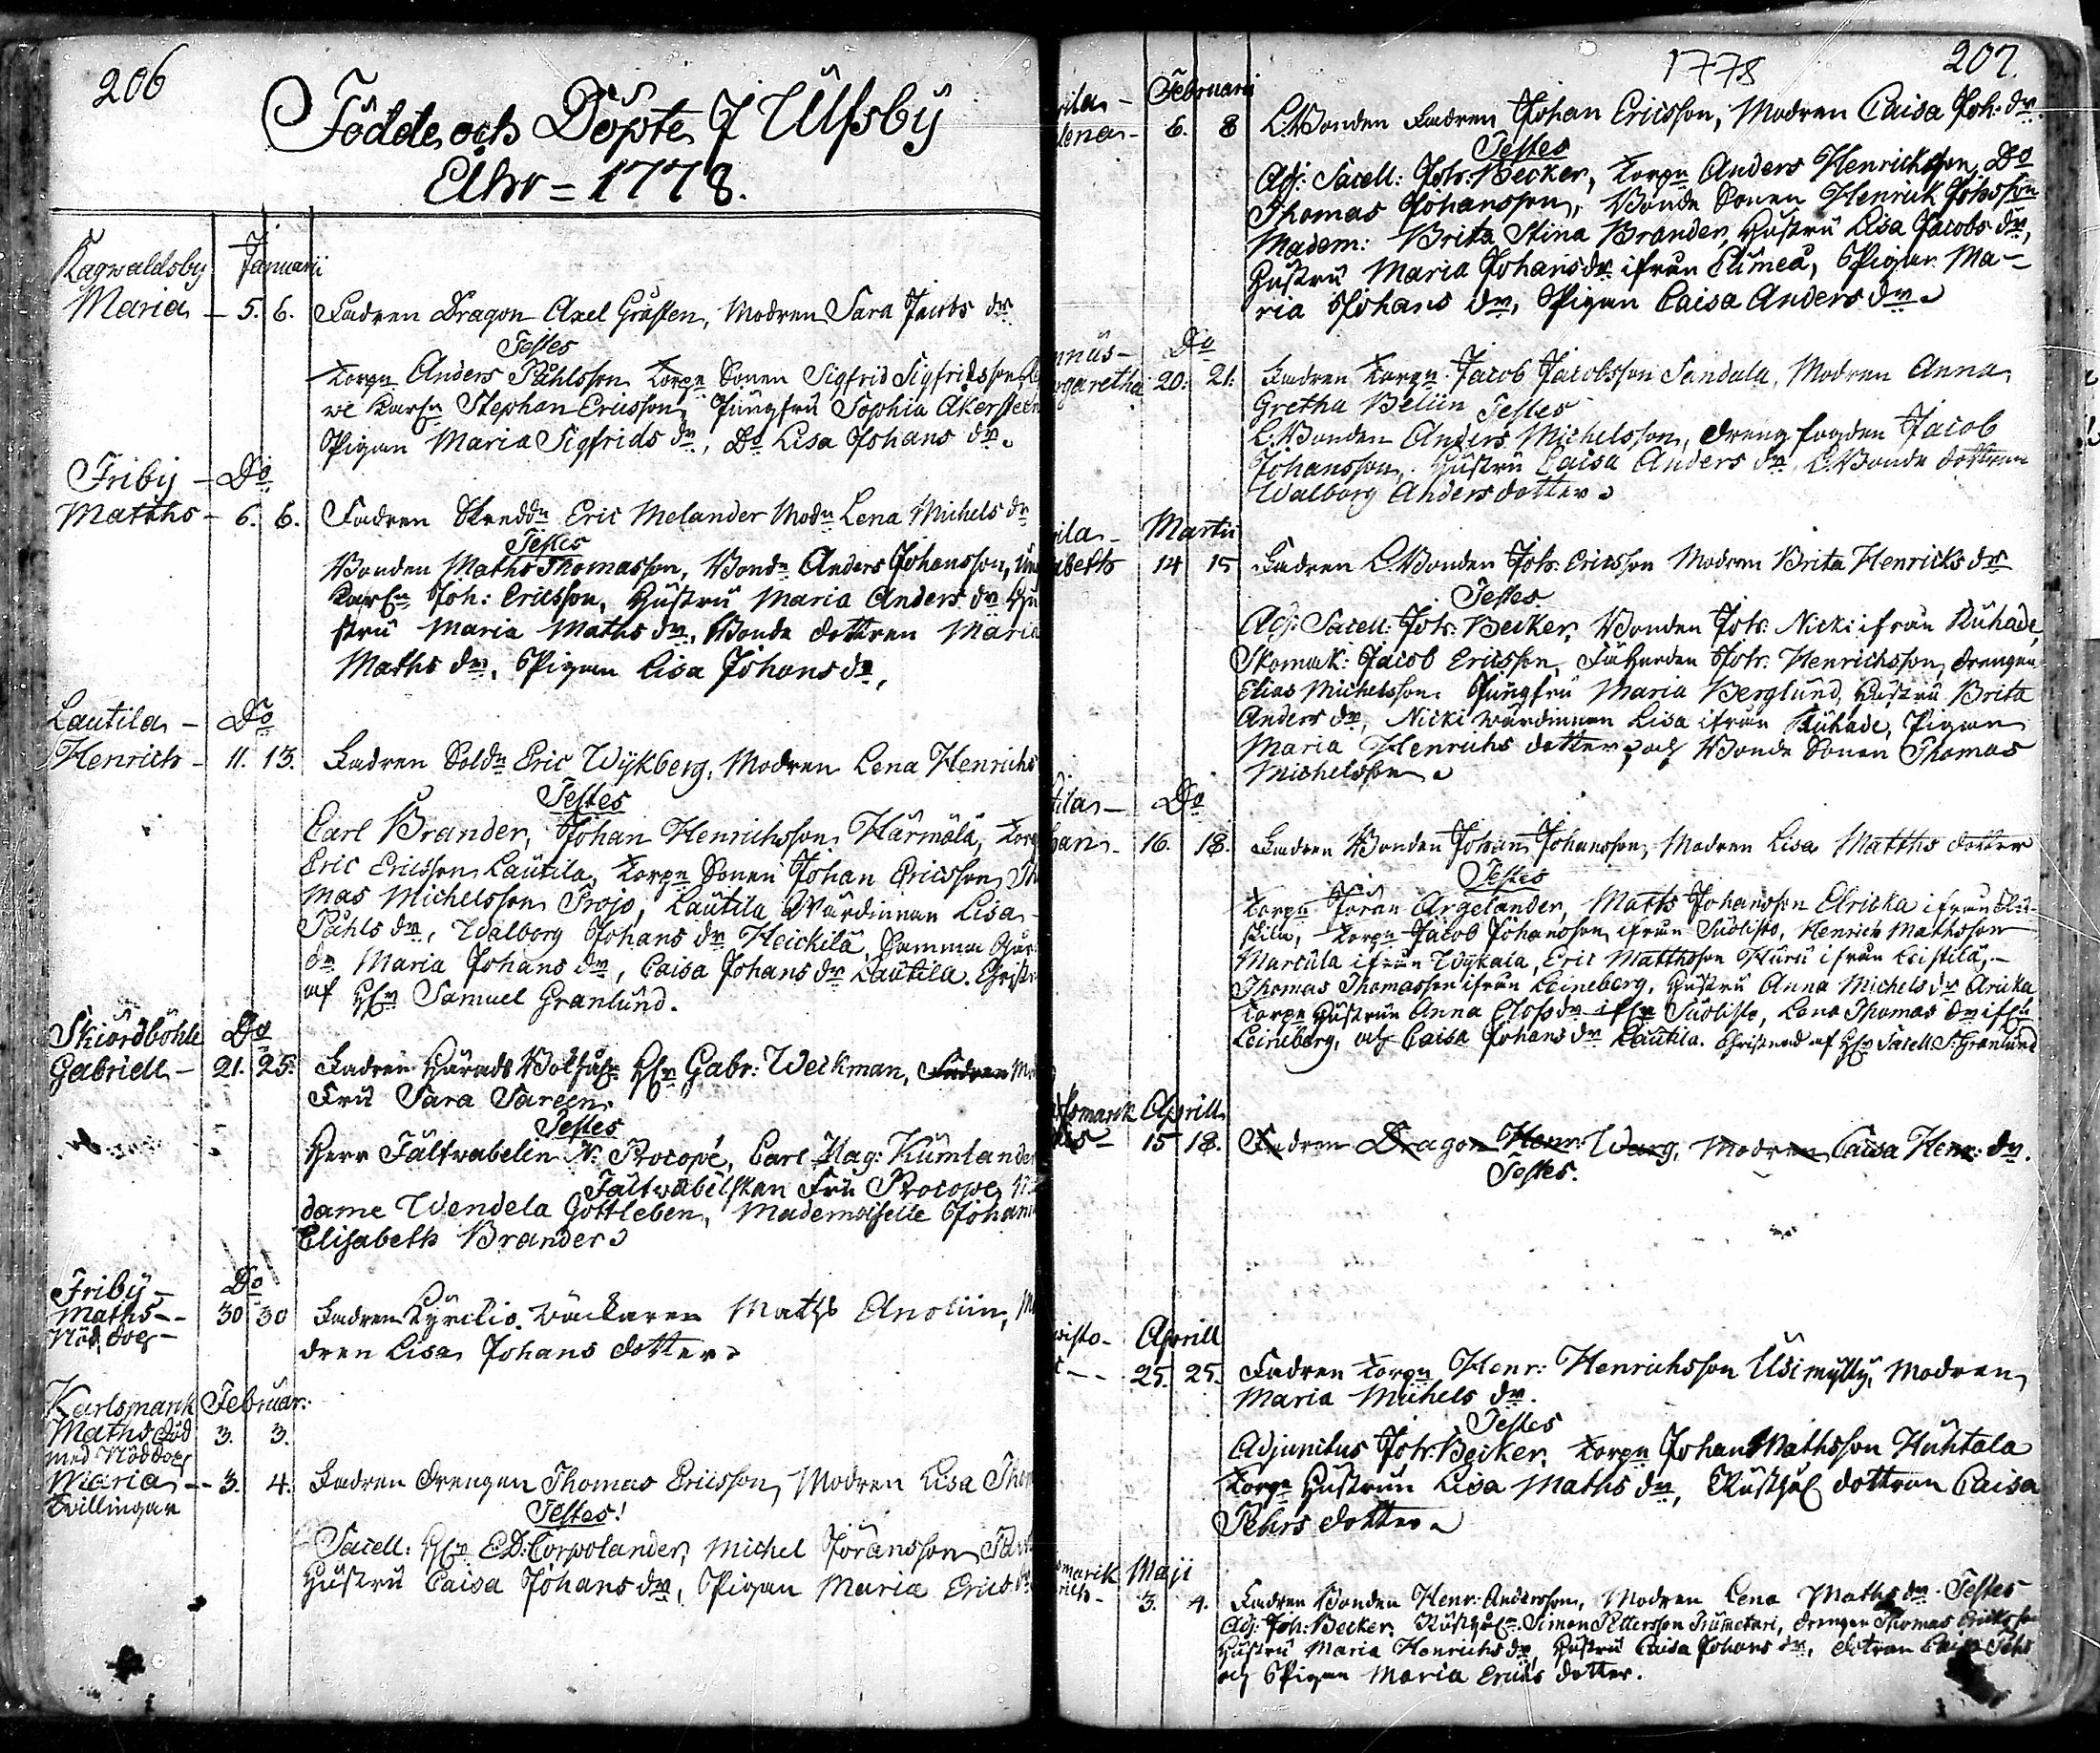 206
Födde och Döpte J Ulfsby
Åhr = 1778.
Ragwaldsby Januarii
Maria - 5. 6. Fadren Dragon Axel Grusten, Modren Sara Jacobs dr
Testes
Torpn Anders Påhlsson Torpn Sonen Sigfrid Sigfridsson
Stephan Ericsson, Jungfru Sophia Åkersteen
Pigan Maria Sigfrids dr, Do Lisa Johans dr.
Friby - Do
Matths - 6. 6. Fadren Skreddn Eric Melander Modn Lena Michels dr
Testes
Bonden Maths Thomasson, Bondn Anders Johansson,
Joh: Ericsson, Hustru Maria Anders dr Hu
stru Maria Maths dr, Bonde dottren Maria
Maths dr, Pigan Lisa Johans dr,
Lautila - Do
Henrich - 11. 13. Fadren Soldn Eric Wykberg, Modren Lena Henrichs
Testes
Carl Brander, Johan Henrichsson Härmälä, Torp
Eric Ericsson Lautila, Torpn Sonen Johan Ericsson Tho
mas Michelsson Frojo, Lautila Wärdinnan Lisa
Påhls dr, Walborg Johans dr Heickilä, Samma
dr Maria Johans dr, Caisa Johans dr Lautila. Christn
af Hr Samuel Granlund.
Skiördböhle Do
Gabriell - 21. 25. Fadren Härads Hr Gabr: Weckman, Fadren Mo
Fru Sara Sareen
Testes
Herr Fältwäbelin N. Procopé, Carl Mag: Kumlander
Fältwäbelskan Fru Procope,
dame Wendela Gottleben, Mademoiselle Johan
Elisabeth Brander
Friby - Do
Maths - - 30 30 Fadren Maths Anoliin, Mo
Nöd. dop -
dren Lisa Johans dotter
Karlsmark Februar:
Maths död 3. 3.
med Nöddop
Maria - - 3. 4. Fadren drengen Thomas Ericsson, Modren Lisa Thom
Tvillingar
Testes!
Sacell: Hr E.D: Corpolander, Michel Jöransson
Hustru Caisa Johans dr, Pigan Maria Erics dr
1778 207.
tila - Februarii
lena - 6. 8 L.Bonden Fadren Johan Ericsson, Modren Caisa Joh: dr.
Testes
Adj: Sacell: Joh: Becker, Torpn Anders Henricksson, Do
Thomas Johansson, Bonde Sonen Henrick Johsson
Madem: Brita Stina Brander, Hustru Lisa Jacobs dr,
Hustru Maria Johans dr ifrån Elimeä, Pigan Ma-
ria Johans dr, Pigan Caisa Anders dr
nnus - Do
rgaretha 20: 21: Fadren Torpn Jacob Jacobsson Sandula, Modren Anna
Gretha Beliin Testes
L.Bonden Anders Michelsson, drengfogden Jacob
Johansson, Hustru Caisa Anders dr, L.Bonde dottren
Walborg Anders dotter
ila - Martii
abeth 14 15 Fadren L.Bonden Joh: Ericsson Modren Brita Henricks dr
Testes
Adj: Sacell: Joh: Becker, Bonden Joh: Nicki ifrån Ruhade,
Skomak: Jacob Ericsson, Joh: Henrichsson, drengen
Elias Michelsson. Jungfru Maria Berglund, Hustru Brita
Anders dr, Nicki wärdinnan Lisa ifrån Ruhade, Pigan
Maria Henrichs dotter, och Bonde Sonen Thomas
Michelsson
tila - Do
han - 16. 18. Fadren Bonden Johan Johansson, Modren Lisa Matths dotter
Testes
Torpn Jöran Argelander, Maths Johansson Elricka ifrån
Torpn Jacob Johansson ifrån Suolisto, Henrich Mathsson
Marcula ifrån Wykala, Eric Matthsson Huru ifrån Leistilä, -
Thomas Thomasson ifrån Leineberg, Hustru Anna Michels dr
Torpn Hustrun Anna Clofs dr ifrn Suolisto, Lena Thomas dr ifrn
Leineberg, och Caisa Johans dr Lautila. Christnad af Hr Sacell S: Granlund
lsmark Aprill
15 18. Fadren Dragon Henr: Warg, Modren Caisa Henr: dr.
Testes.
wisto - Aprill
- - 25. 25. Fadren Torpn Henr: Henrichsson Usimylly, Modren
Maria Michels dr.
Testes
Adjunctus Joh: Becker, Torpn Johan Mathsson Huhtala
Torpn Hustrun Lisa Maths dr, dottren Caisa
Pehrs dotter
smarck Maji
rich - 3. 4. Fadren Bonden Henr: Andersson, Modren Lena Maths dr. Testes
Adj: Joh: Becker, Simon Pettersson, drengen Thomas Ericksson
Hustru Maria Henrichs dr, Hustru Caisa Johans dr, dotren Caisa Pehrs
och Pigan Maria Erichs dotter.